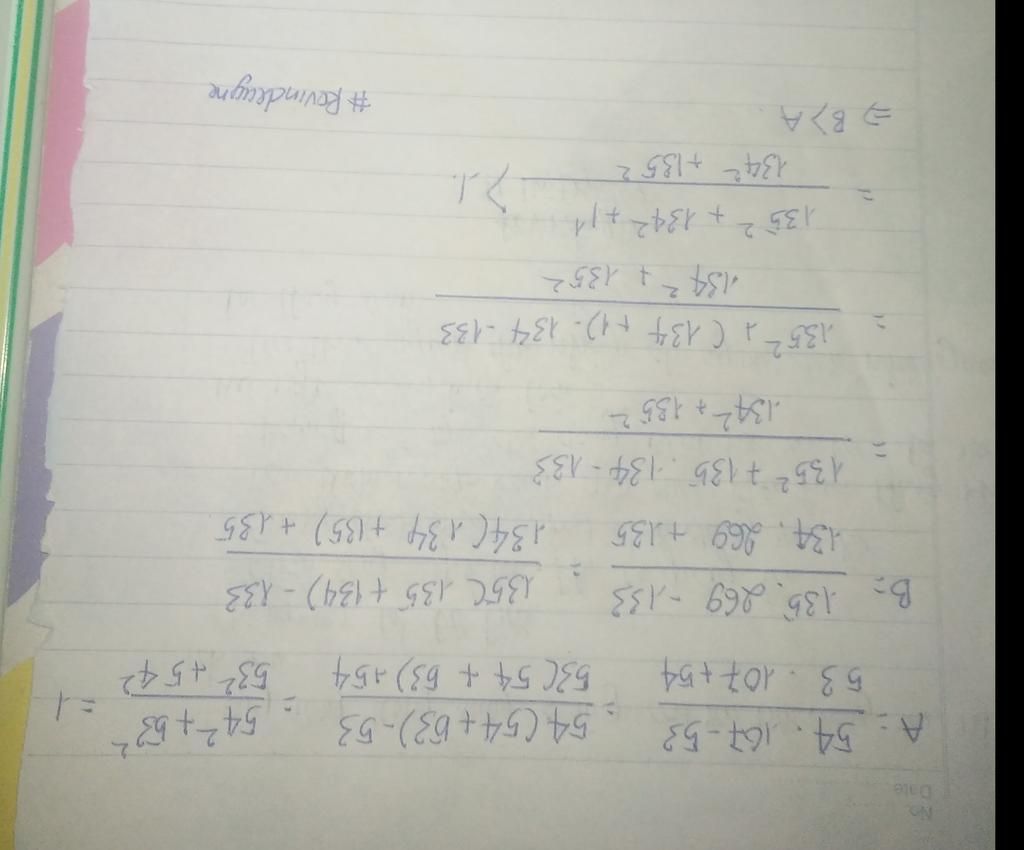 No.
Date
A = 54 . 107 - 53 / 53 . 107 + 54 = 54 ( 54 + 53 ) - 53 / 53 ( 54 + 53 ) + 54 = 54² + 53² / 53² + 54² = 1
B = 135 . 269 - 133 / 134 . 269 + 135 = 135 ( 135 + 134 ) - 133 / 134 ( 134 + 135 ) + 135
= 135² + 135 . 134 - 133 / 134² + 135²
= 135² + ( 134 + 1 ) . 134 - 133 / 134² + 135²
= 135² + 134² + 1 / 134² + 135² > 1.
⇒ B > A.